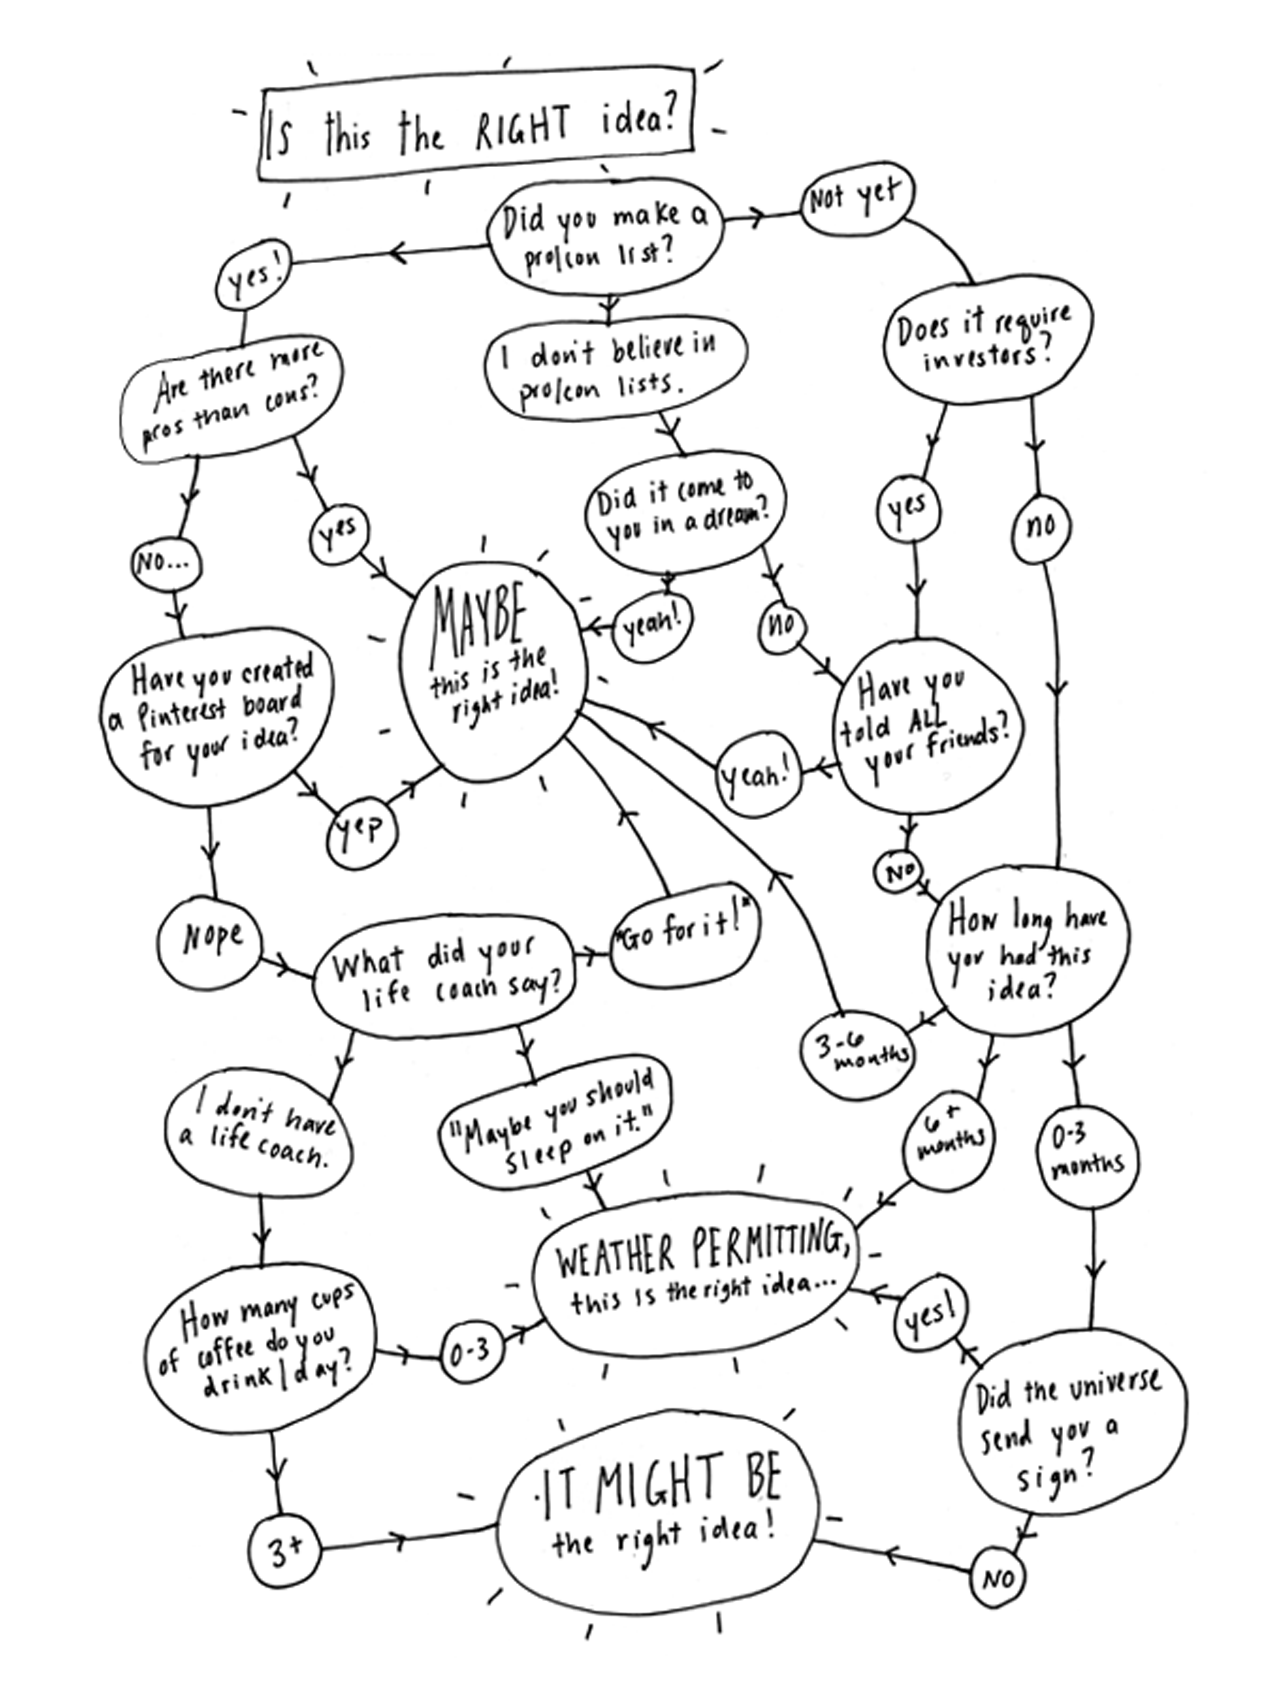 Is this the RIGHT idea?
Did you make a
pro/con list?
Not yet
yes!
Does it require
investors?
I don't believe in
pro/con lists.
Are there more
pros than cons?
Did it come to
you in a dream?
yes
no
yes
No...
yeah!
no
MAYBE
this is the
right idea!
Have you created
a Pinterest board
for your idea?
Have you
told ALL
your friends?
yeah!
yep
No
Nope
What did your
life coach say?
"Go for it!"
How long have
you had this
idea?
3-6
months
I don't have
a life coach.
"Maybe you should
sleep on it."
6+
months
0-3
months
WEATHER PERMITTING,
this is the right idea...
How many cups
of coffee do you
drink/day?
0-3
yes!
Did the universe
send you a
sign?
IT MIGHT BE
the right idea!
3+
NO